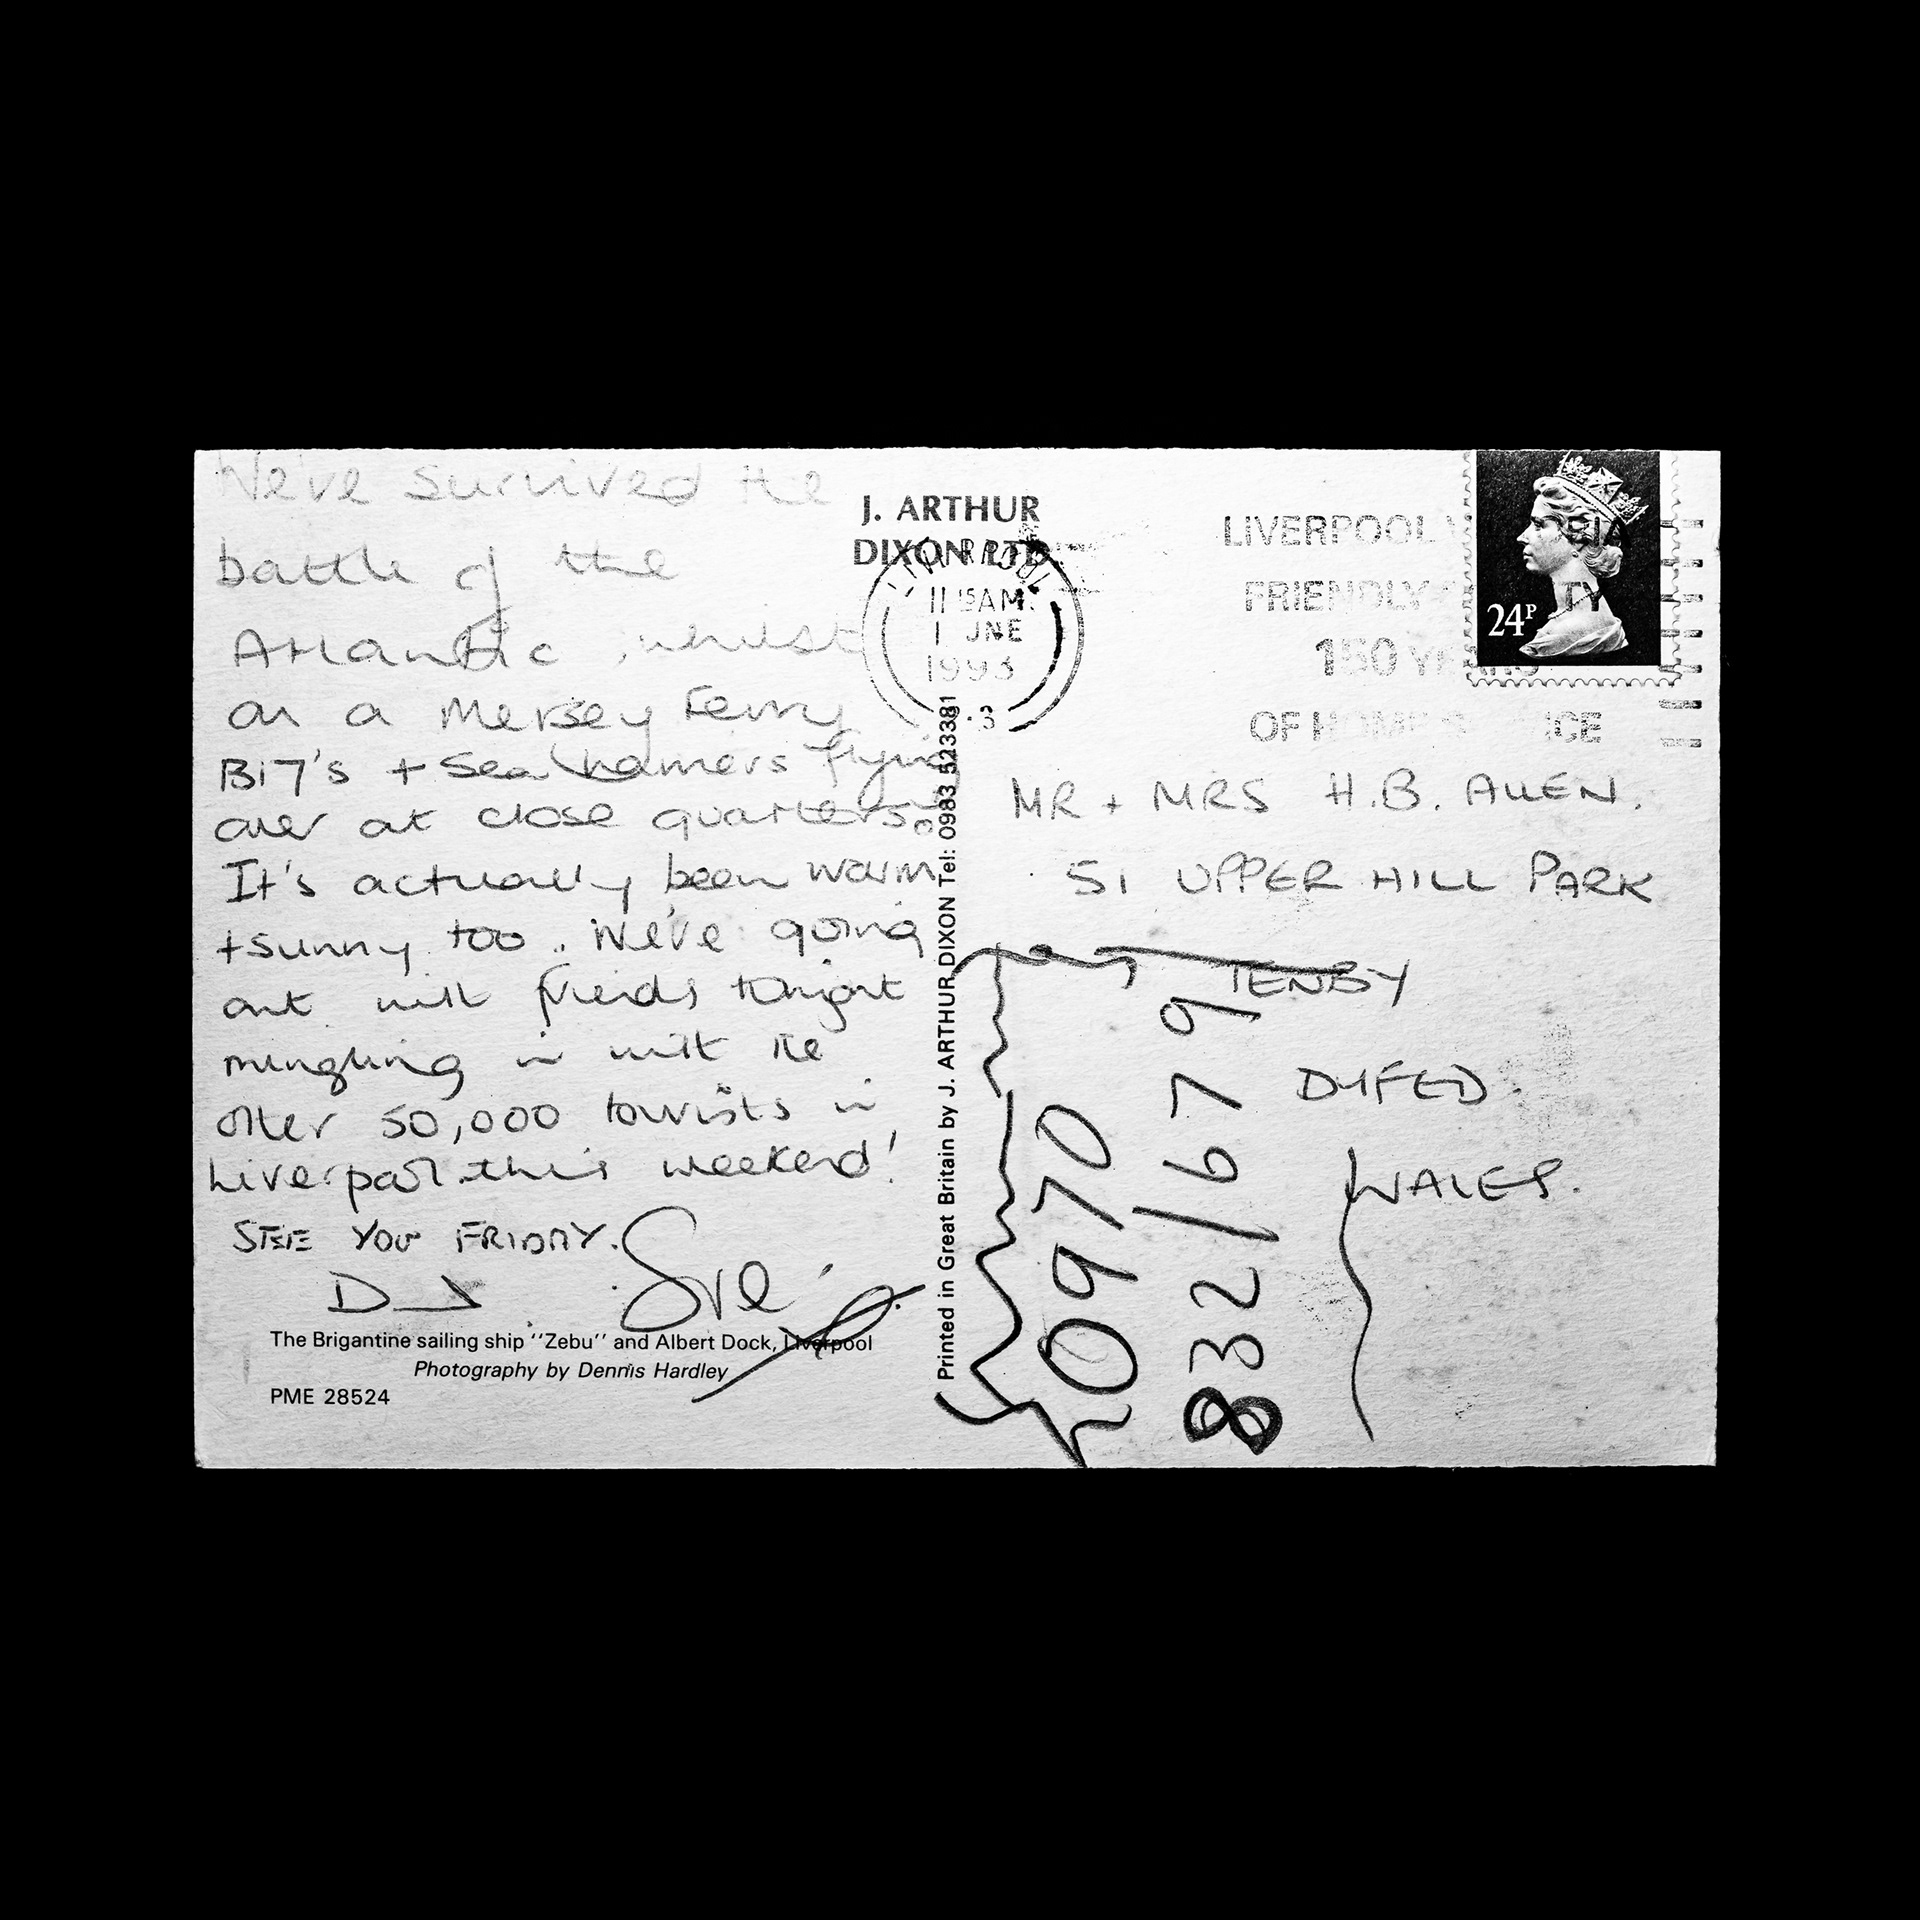 We've survived the
battle of the
Atlantic, whilst
on a Mersey Ferry
B17's + Sea flying
over at close quarters.
It's actually been warm
+ sunny too. We're going
out with friends tonight
mingling in with the
other 50,000 tourists in
Liverpool this weekend!
SEE YOU FRIDAY.
Sue
The Brigantine sailing ship "Zebu" and Albert Dock, Liverpool
Photography by Dennis Hardley
PME 28524
J. ARTHUR
DIXON LTD.
LIVERPOOL
11 15 AM
1 JNE
1993
3
Printed in Great Britain by J. ARTHUR DIXON Tel: 0983 523381
LIVERPOOL
FRIENDLY
150 YEARS
OF
24P
MR + MRS H.B. ALLEN.
51 UPPER HILL PARK
TENBY
DYFED.
WALES.
0970
832/679